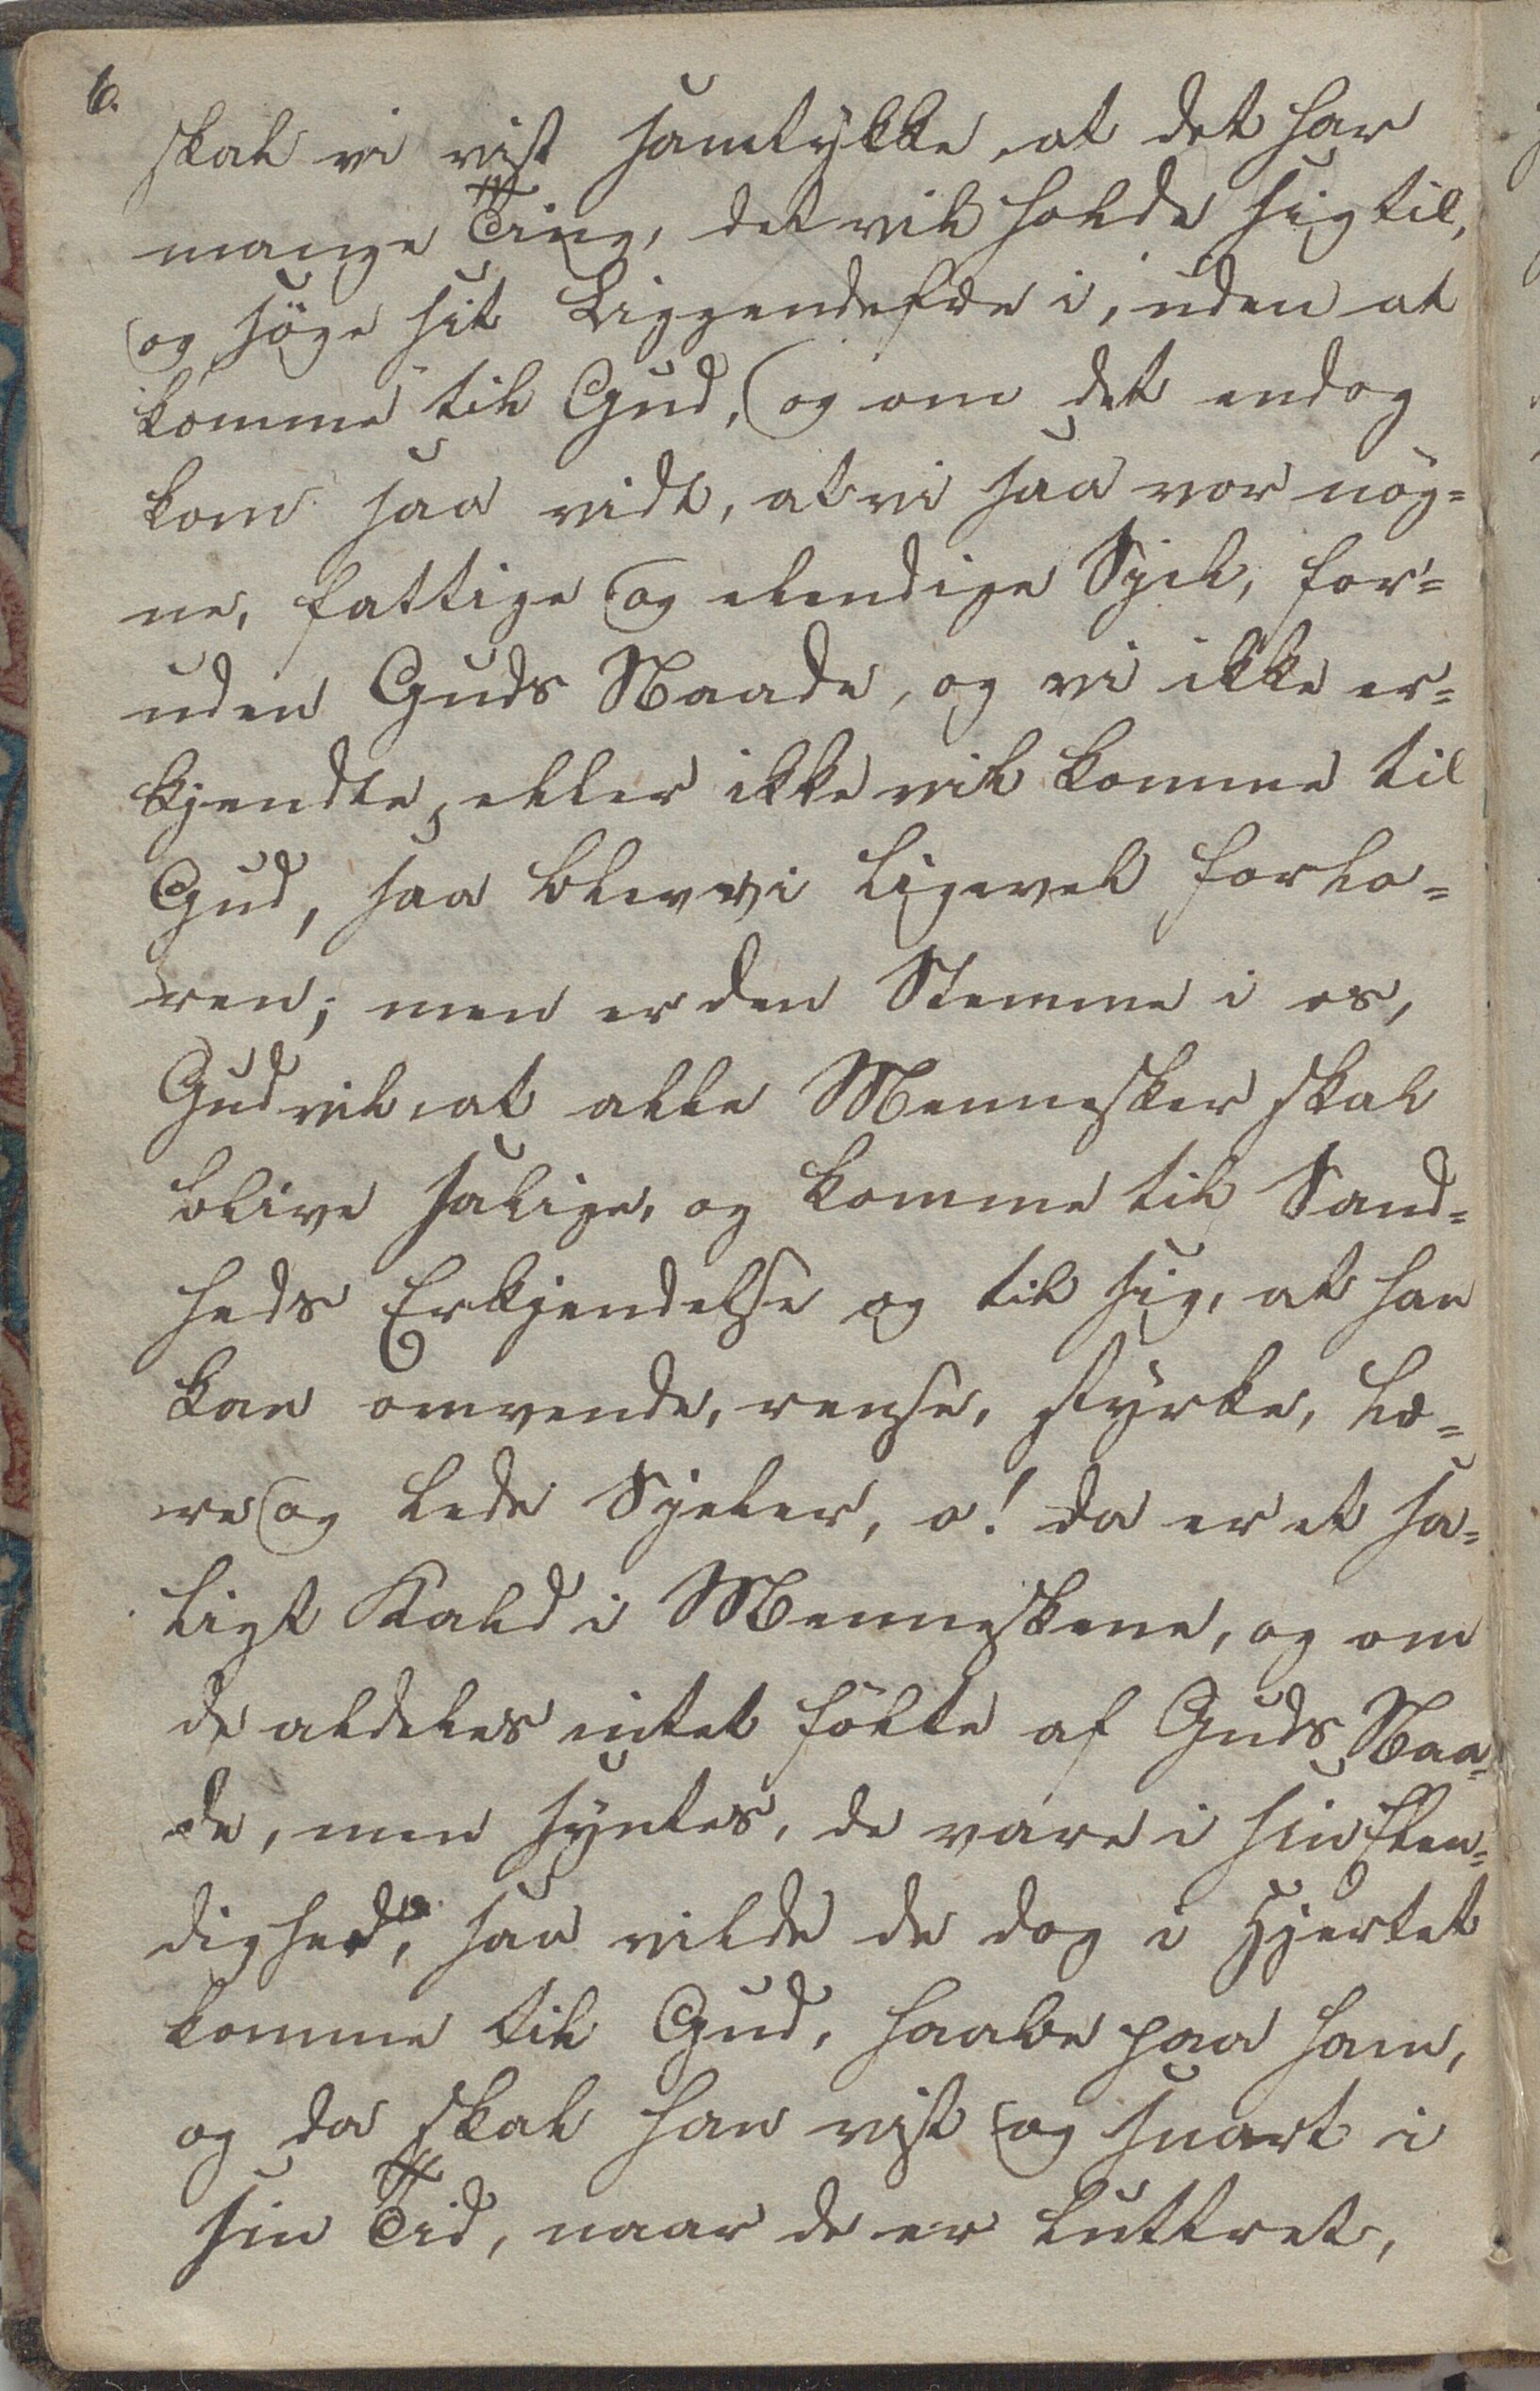 6.
skal vi vist samtykke, at det har
mange Ting, det vil holde sig til,
og söge sit Liggendefæ i, uden at
komme til Gud, og om det endog
kom saa vidt, at vi saa vor nög=
ne, fattige og elendige Sjel, for=
uden Guds Naade, og vi ikke er=
kjendte, eller ikke vil komme til
Gud, saa blev vi ligevel forlo=
ren; men er den Stemme i os,
Gud vil, at alle Mennesker skal
blive salige, og komme til Sand=
heds Erkjendelse og til sig, at han
kan omvende, rense, styrke, læ=
re og lede Sjeler, o! da er et sa=
ligt Kald i Menneskene, og om
de aldeles intet fölte af Guds Naa=
de, men syntes, de vare i sin Elen=
dighed, saa vilde de dog i Hjertet
komme til Gud, haabe paa ham,
og da skal han vist og snart i
sin Tid, naar de er luttret,